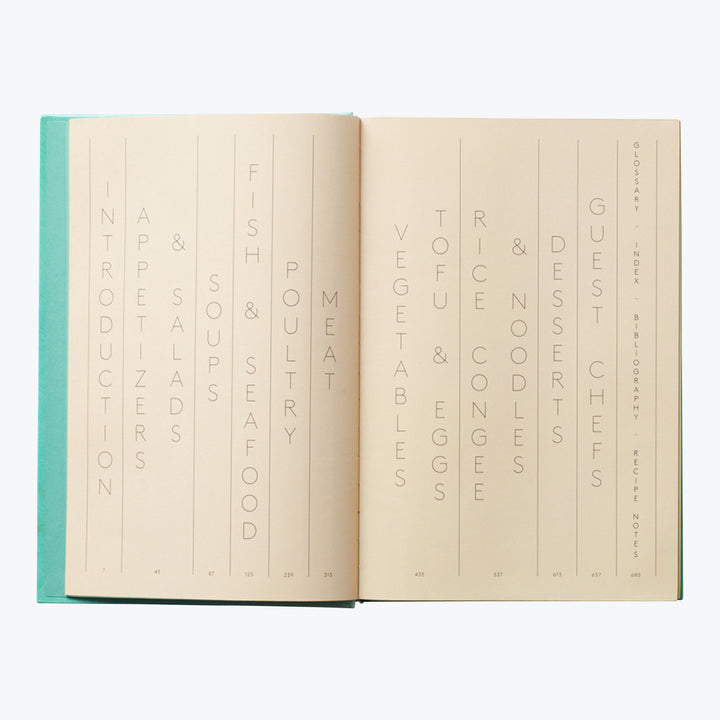 INTRODUCTION
APPETIZERS
& SALADS
SOUPS
FISH & SEAFOOD
POULTRY
MEAT
7
43
87
125
239
313
VEGETABLES
TOFU & EGGS
RICE CONGEE
& NOODLES
DESSERTS
GUEST CHEFS
GLOSSARY - INDEX - BIBLIOGRAPHY - RECIPE NOTES
435
537
613
657
685